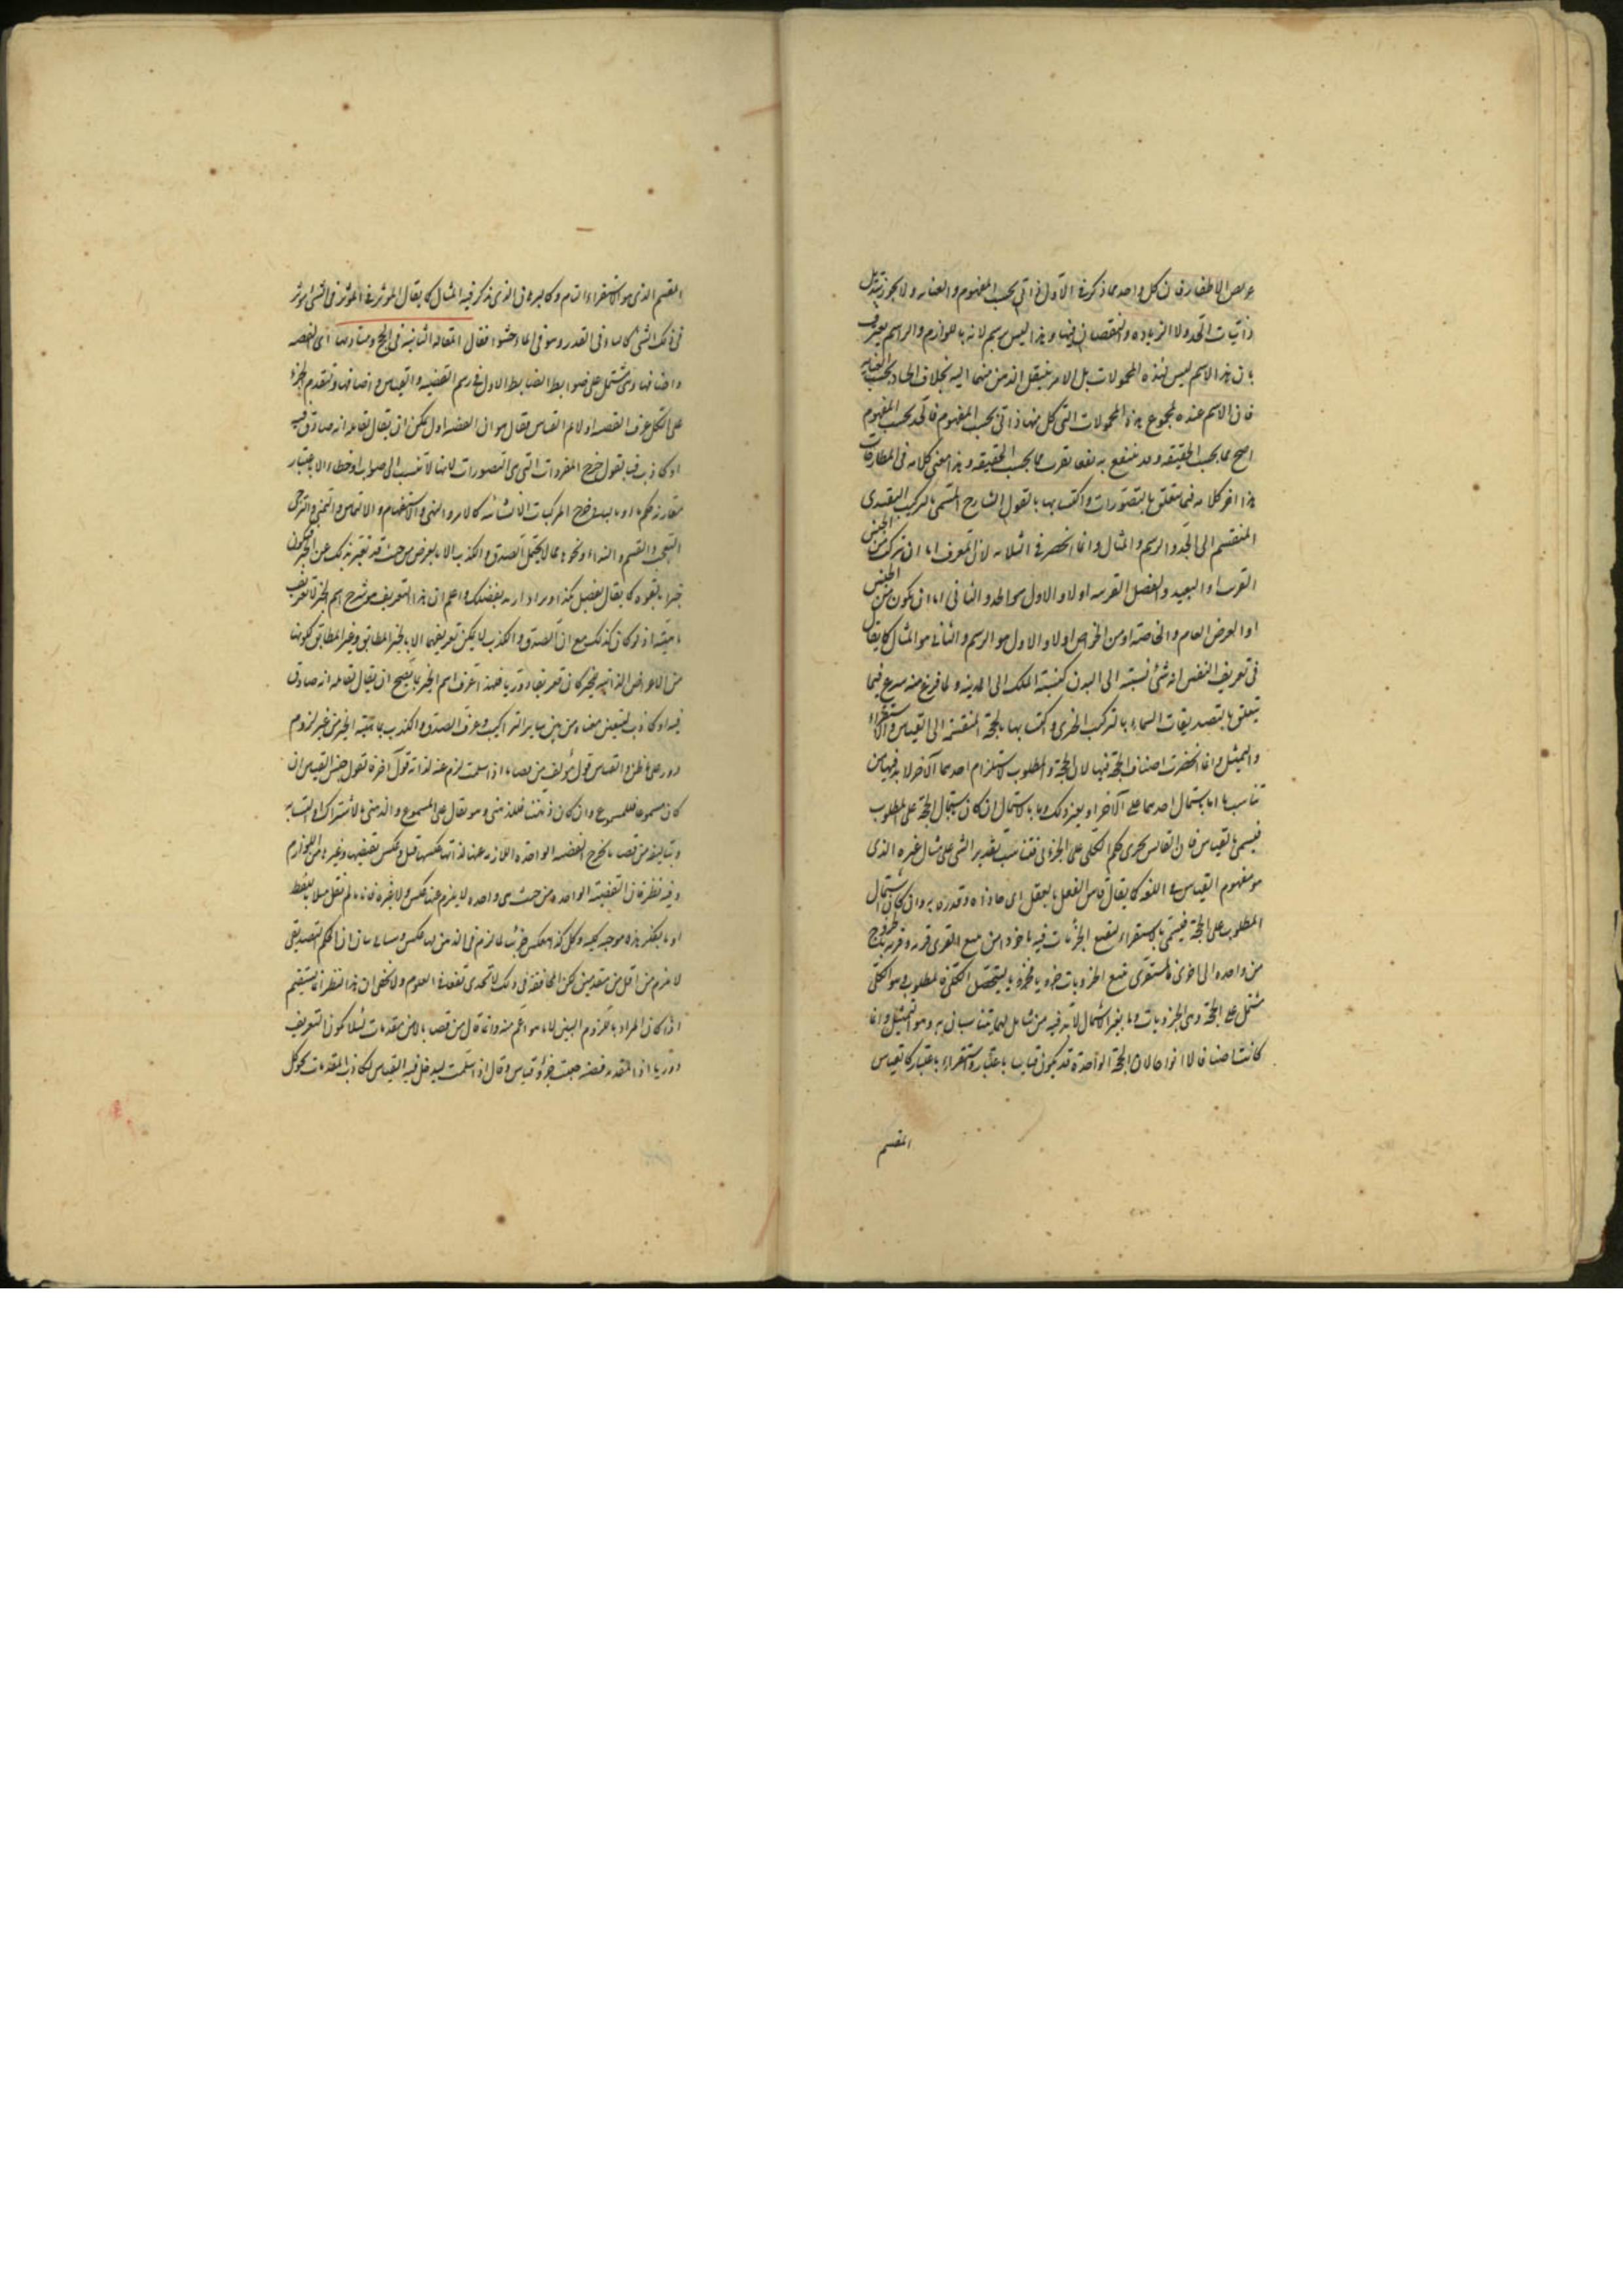 عريض الاظفار فان كل واحد مما ذكر في الاول ذاتي بحسب المفهوم والعناية ولا يجوز تبديل
ذاتيات الحد ولا الزيادة والنقصان فيها وهذا ليس برسم لانه باللوازم والراسم يعترف
بان هذا الاسم ليس لهذه المحمولات بل لامر ينتقل الذهن منها اليه بخلاف الحاد بحسب العناية
فان الاسم عنده لمجموع هذه المحمولات التي كل منها ذاتي بحسب المفهوم فالحد بحسب المفهوم
اصح مما بحسب الحقيقة وقد ينتفع به نفعا يقرب مما بحسب الحقيقة وهذا معنى كلامه في المطارحات
هذا اخر كلامه فيما يتعلق بالتصورات واكتسابها بالقول الشارح المسمى بالتركيب التقييدي
المنقسم الى الحد والرسم والمثال وانما انحصر في الثلاثة لان المعرف اما ان تركب من الجنس
القريب او البعيد والفصل القريب اولا والاول هو الحد والثاني اما ان يكون من الجنس
او العرض العام والخاصة او من الخواص اولا والاول هو الرسم والثاني هو المثال كما يقال
في تعريف النفس انه شئ نسبته الى البدن كنسبة الملك الى المدينة ولما فرغ منه شرع فيما
يتعلق بالتصديقات المسماة بالتركيب الخبري واكتسابها بالحجة المنقسمة الى القياس والاستقراء
والتمثيل وانما انحصرت اصناف الحجة فيها لان الحجة والمطلوب لاستلزام احدهما الآخر لا بد فيهما من
تناسب اما باشتمال احدهما على الآخر او بغير ذلك وما بالاشتمال ان كان باشتمال الحجة على المطلوب
فيسمى بالقياس فان القائس يجري حكم الكلي على الجزئي فتناسب تقدير الشئ على مثال غيره الذي
هو مفهوم القياس في اللغة كما يقال قاس النعل بالنعل اى حاذاه وقدره به وان كان باشتمال
المطلوب على الحجة فيسمى بالاستقراء لتتبع الجزئيات فيه ماخوذا من تتبع القرى قرية فقرية بالخروج
من واحدة الى اخرى فالمستقرى يتتبع الجزويات جزويا فجزويا ليتحصل الكلي فالمطلوب وهو الكلي
مشتمل على الحجة وهى الجزويات وما بغير الاشتمال لابد فيه من شامل لهما يتناسبان به وهو التمثيل وانما
كانت اصنافا لا انواعا لان الحجة الواحدة قد يكون قياسا باعتبار واستقراء باعتبار كالقياس
المقسم
المقسم الذى هو الاستقراء التام وكالبرهان الذى ذكر فيه المثال كما يقال المؤثر في المؤثر في الشئ مؤثر
في ذلك الشئ كالمساوى في القدر وهو في الماء حشو فقال المقالة الثانية في الحجج ومباديها اى القضية
واصنافها وهى تشتمل على ضوابط الضابط الاول في رسم القضية والقياس واصنافها ولتقدم الجزء
على الكل عرف القضية اولا ثم القياس فقال هو ان القضية قول يمكن ان يقال لقائله انه صادق فيه
او كاذب فبالقول خرج المفردات التي هى التصورات لانها لا تنسب الى صواب او خطاء الا باعتبار
مقارنة حكم ما وما يليه خرج المركبات الانشائية كالامر والنهى والاستفهام والالتماس والتمنى والترجى
والتعجب والقسم والنداء ونحوها مما لا يحتمل الصدق والكذب الا بالعرض من حيث قد يعبر بذلك عن الخبر فيكون
خبرا بالقوة كما يقال تفضل بكذا ويراد اريد تفضلك واعلم ان هذا التعريف هو شرح اسم الخبر لا تعريف
ماهيته اذ لو كان كذلك مع ان الصدق والكذب لا يمكن تعريفهما الا بالخبر المطابق وغير المطابق لكونهما
من الاعراض الذاتية للخبر كان تعريفا دوريا فلهذا عرف اسم الخبر بما يصح ان يقال لقائله انه صادق
فيه او كاذب لتعيين معناه من بين سائر التراكيب وعرف الصدق والكذب بماهية الخبر من غير لزوم
دور على ما ظن والقياس قول مؤلف من قضايا اذا سلمت لزم عنه لذاته قول آخر فالقول جنس القياس ان
كان مسموعا فللمسموع وان كان ذهنيا فللذهنى وهو يقال على المسموع والذهنى بالاشتراك او التشابه
وبتاليفه من قضايا يخرج القضية الواحدة اللازم عنها لذاتها عكسها قيل وعكس نقيضها وغيرها من اللوازم
وفيه نظر فان القضية الواحدة من حيث هى واحدة لا يلزم عنها عكس ولا غيره فانا ما لم نقل مثلا بلفظ
او بالفكر هذه موجبة كلية وكل كذا تنعكس جزئية لما لزم في الذهن لها عكس وسياتى بيان ان الحكم التصديقى
لا يلزم من اقل من مقدمتين لكن المخالفة في ذلك لا تجدى نفعا في العلوم ولا يخفى ان هذا النظر انما يستقيم
اذا كان المراد باللزوم البين لا ما هو اعم منه وانما قال من قضايا لا من مقدمات لئلا يكون التعريف
دوريا اذ المقدمة قضية جعلت جزؤ قياس وقال اذا سلمت ليدخل فيه القياس الكاذب المقدمات كقولك كل